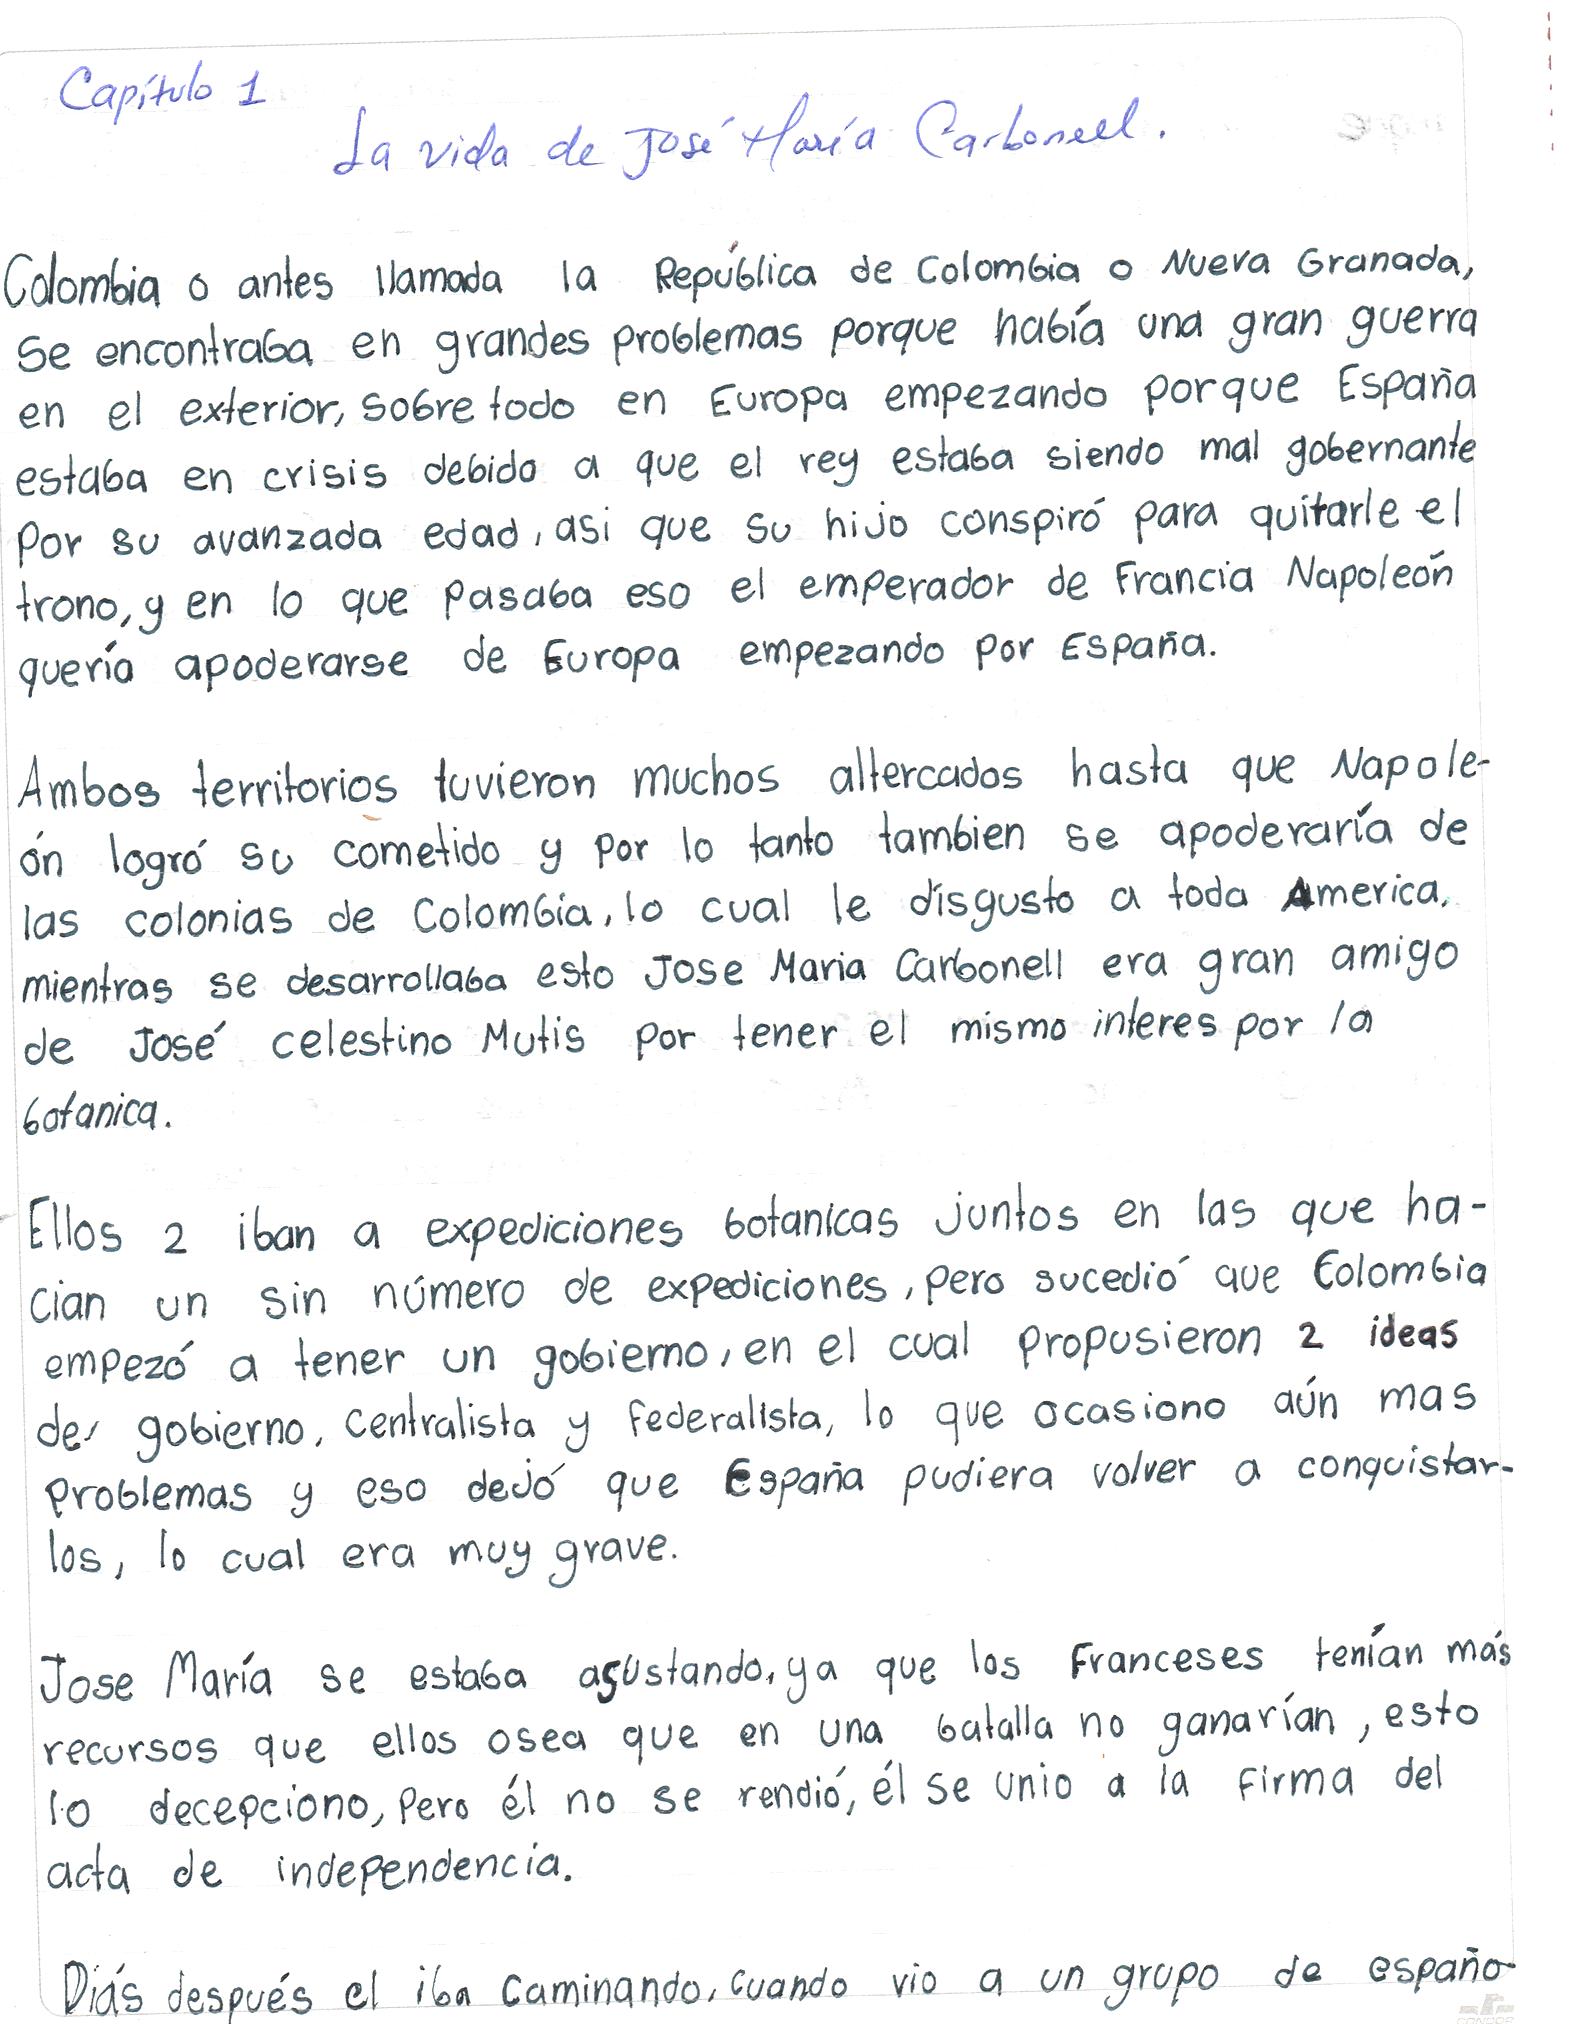 Capítulo 1
La vida de José María Carbonell.
Colombia o antes llamada la República de Colombia o Nueva Granada,
se encontraba en grandes problemas porque había una gran guerra
en el exterior, sobre todo en Europa empezando porque España
estaba en crisis debido a que el rey estaba siendo mal gobernante
por su avanzada edad, asi que su hijo conspiró para quitarle el
trono, y en lo que pasaba eso el emperador de Francia Napoleón
quería apoderarse de Europa empezando por España.
Ambos territorios tuvieron muchos altercados hasta que Napole-
ón logró su cometido y por lo tanto tambien se apoderaría de
las colonias de Colombia, lo cual le disgusto a toda America,
mientras se desarrollaba esto Jose Maria Carbonell era gran amigo
de José celestino Mutis por tener el mismo interes por la
botanica.
Ellos 2 iban a expediciones botanicas juntos en las que ha-
cian un sin número de expediciones, pero sucedió que Colombia
empezó a tener un gobierno, en el cual propusieron 2 ideas
de gobierno, centralista y federalista, lo que ocasiono aún mas
problemas y eso dejó que España pudiera volver a conquistar-
los, lo cual era muy grave.
Jose María se estaba asustando, ya que los Franceses tenían más
recursos que ellos osea que en una batalla no ganarían, esto
lo decepciono, pero él no se rendió, él se unio a la firma del
acta de independencia.
Diás después el iba caminando, cuando vio a un grupo de españo-
CONDOR